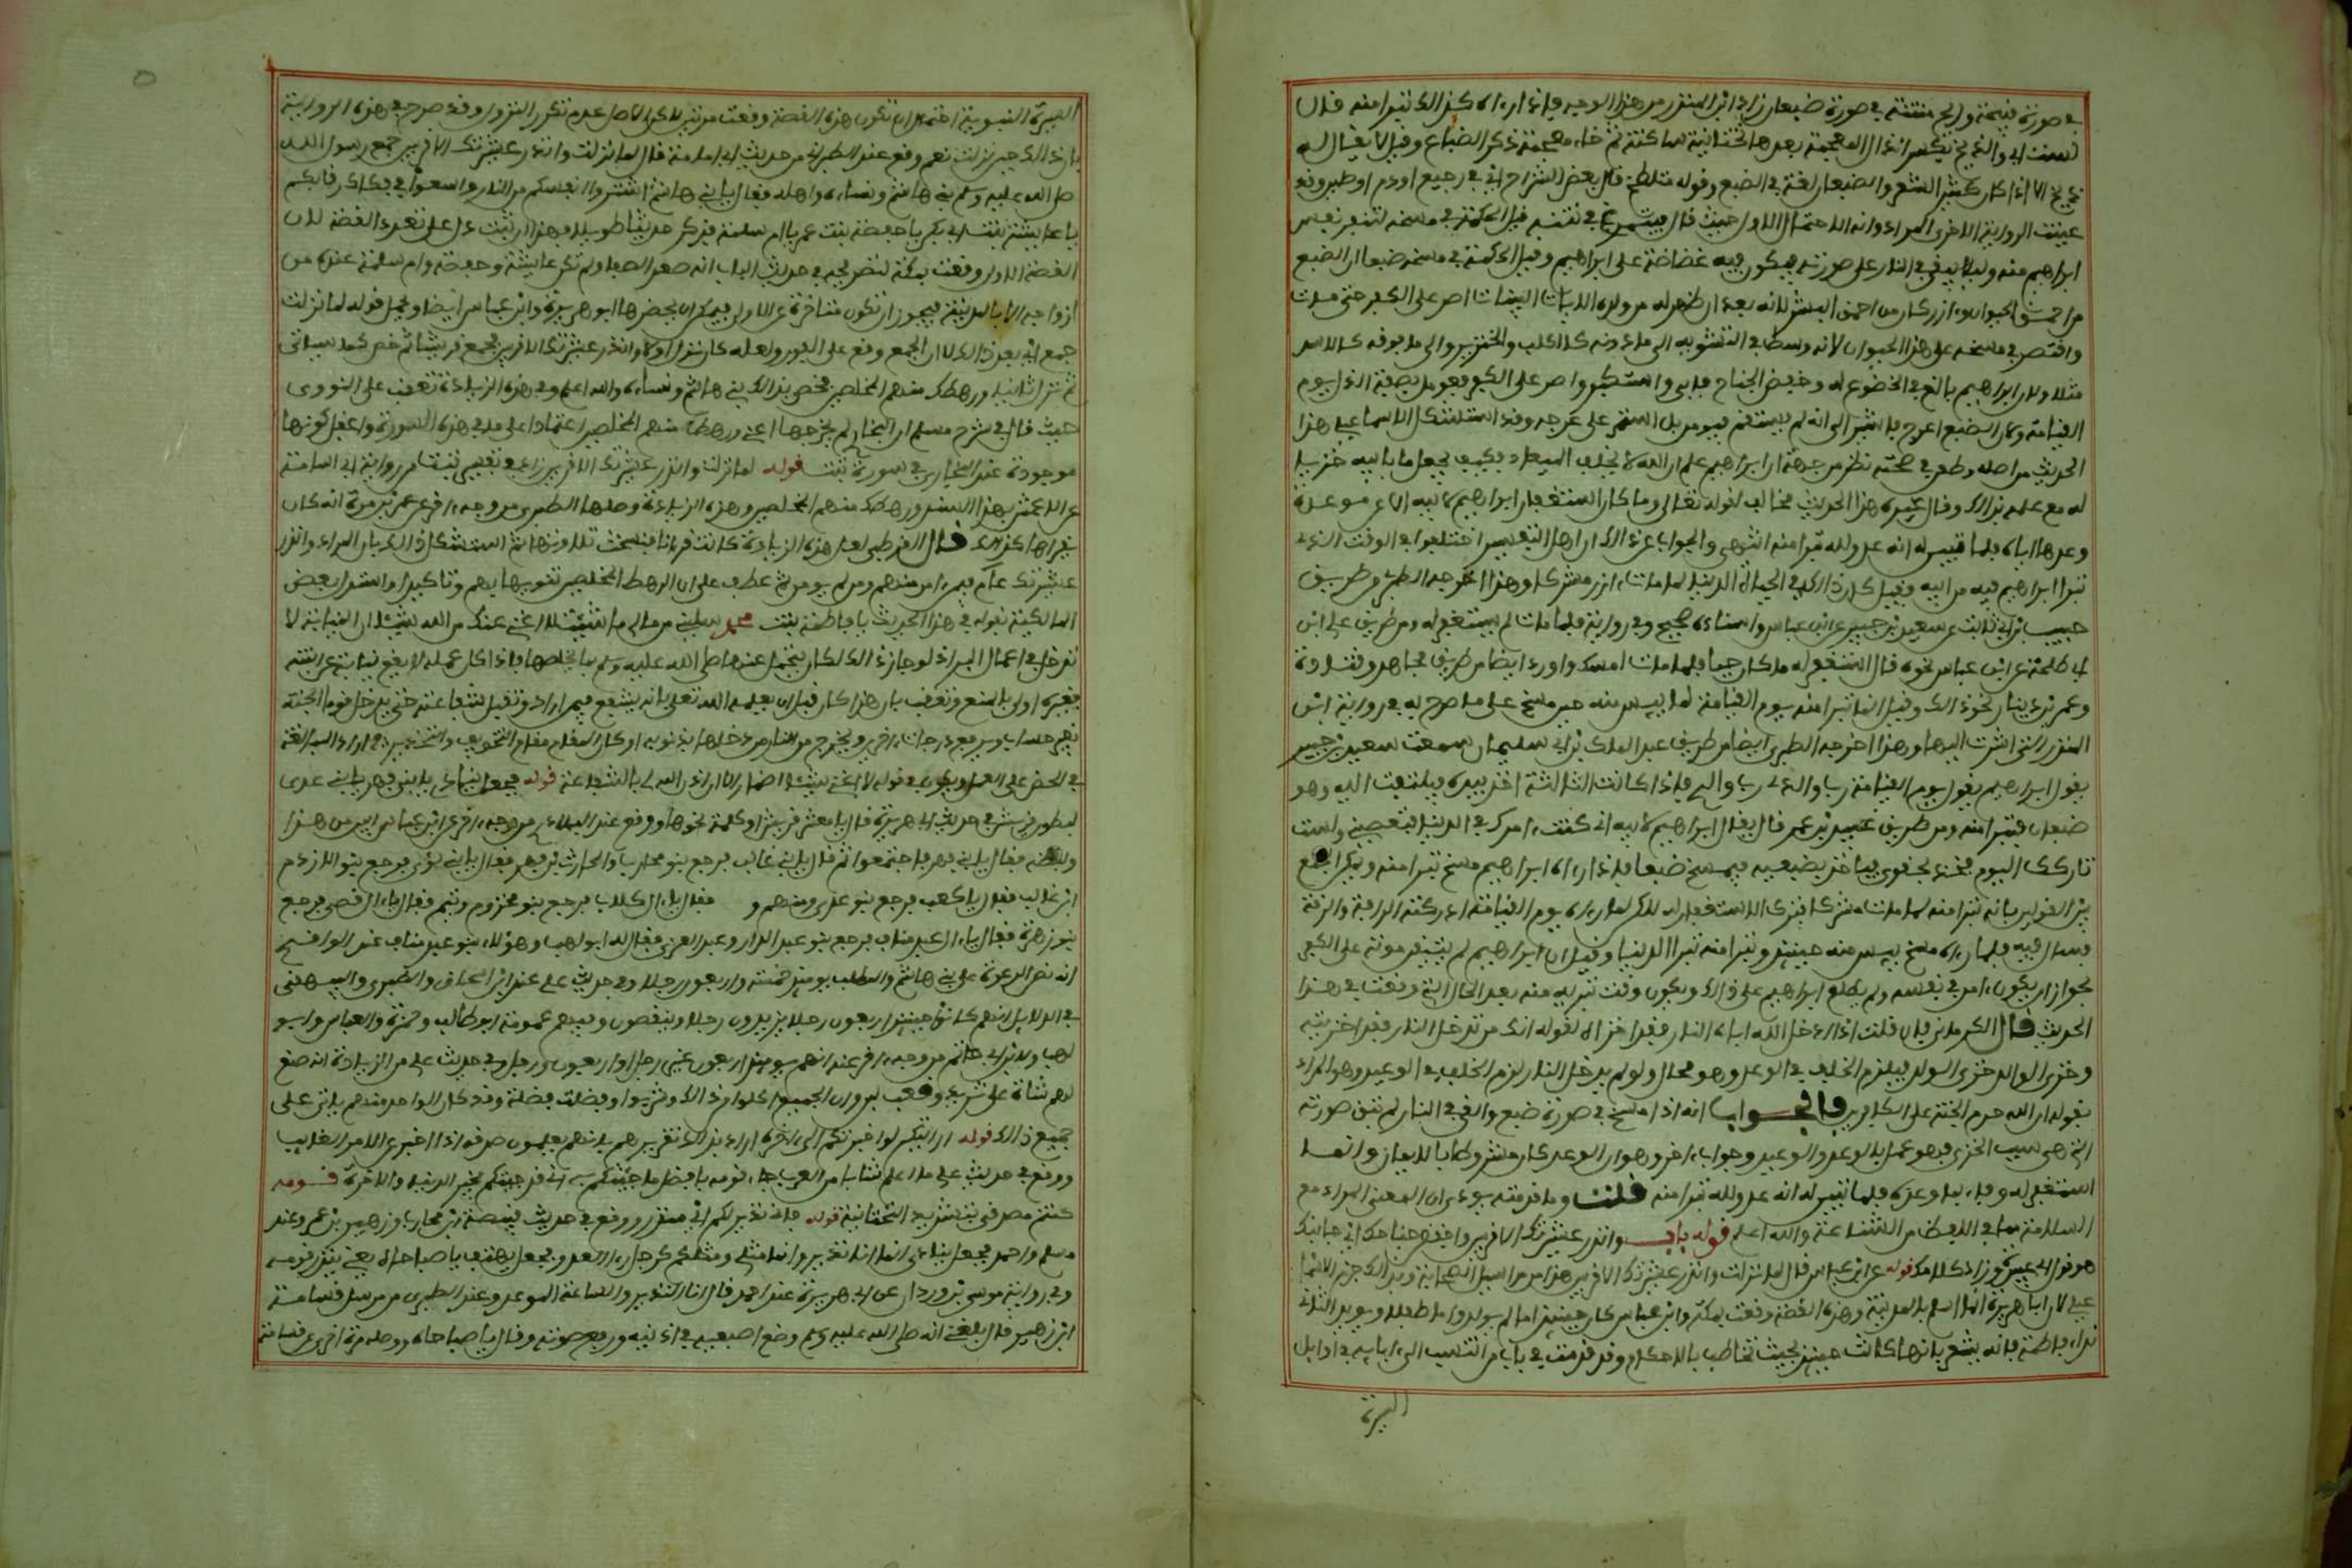 في صورة قبيحة وريح منتنة في صورة ضبعان زاد ابن المنذر من هذا الوجه فإذا رءاه كذالك تبرا منه قال
لست ابي والذيخ بكسر الذال المعجمة بعدها تحتانية ساكنة ثم خاء معجمة ذكر الضباع وقيل لا يقال له
ذيخ الا اذا كان كثير الشعر والضبعان لغة في الضبع وقوله متلطخ قال بعض الشراح اي في رجيع او دم او طين وقد
عينت الرواية الاخرى المراد وانه الاحتمال الاول حيث قال فيتمرغ في نتنه قيل الحكمة في مسخه لتنفر نفس
ابراهيم منه وليلا يبقى في النار على صورته فيكون فيه غضاضة على ابراهيم وقيل الحكمة في مسخه ضبعا ان الضبع
من احمق الحيوان وءازر كان من احمق البشر لانه بعد ان ظهر له من ولده الايات البينات اصر على الكفر حتى مات
واقتصر في مسخه على هذا الحيوان لانه وسط في التشويه الى ما دونه كالكلب والخنزير والى ما فوقه كالاسد
مثلا ولان ابراهيم بالغ في الخضوع له وخفض الجناح فابى واستكبر واصر على الكفر فعومل بصفة الذل يوم
القيامة وكان الضبع اعوج فاشير الى انه لم يستقم فيومن بل استمر على عوجه وقد استشكل الاسماعيلي هذا
الحديث من اصله وطعن في صحته نظر من جهة ان ابراهيم علم ان الله لا يخلف الميعاد فكيف يجعل ما بابيه خزيا
له مع علمه بذالك وقال غيره هذا الحديث مخالف لقوله تعالى وما كان استغفار ابراهيم لابيه الا عن موعدة
وعدها اياه فلما تبين له انه عدو لله تبرا منه انتهى والجواب عن ذالك ان اهل التفسير اختلفوا في الوقت الذي
تبرا ابراهيم فيه من ابيه فقيل كان ذالك في الحياة الدنيا لما مات ءازر مشركا وهذا اخرجه الطبري من طريق
حبيب بن ابي ثابت عن سعيد بن جبير عن ابن عباس واسناده صحيح وفي رواية فلما مات لم يستغفر له ومن طريق علي ابن
ابي طلحة عن ابن عباس نحوه قال استغفر له ما كان حيا فلما مات امسك واورد ايضا من طريق مجاهد وقتادة
وعمرو بن دينار نحو ذالك وقيل انما تبرا منه يوم القيامة لما ييس منه حين مسخ على ما صرح به في رواية ابن
المنذر التي اشرت اليها وهذا اخرجه الطبري ايضا من طريق عبد الملك بن ابي سليمان سمعت سعيد بن جبير
يقول ابراهيم يقول يوم القيامة رب والدي رب والدي فاذا كانت الثالثة اخذ بيده فيلتفت اليه وهو
ضبعان فيتبرا منه ومن طريق عبيد بن عمير قال يقول ابراهيم لابيه اني كنت ءامرك في الدنيا فتعصيني ولست
تاركك اليوم فخذ بحقوي فياخذ بضبعيه فيمسخ ضبعا فاذا رءاه ابراهيم مسخ تبرا منه ويمكن الجمع
بين القولين بانه تبرا منه لما مات مشركا فترك الاستغفار له لاكن لما رءاه يوم القيامة ادركته الرافة والرقة
فسال فيه فلما رءاه مسخ ييس منه حينئذ وتبرا منه تبرا ابديا وقيل ان ابراهيم لم يتيقن موته على الكفر
لجواز ان يكون ءامن في نفسه ولم يطلع ابراهيم على ذالك ويكون وقت تبريه منه بعد الحال التي وقعت في هذا
الحديث قال الكرماني فان قلت اذا ادخل الله اباه النار فقد اخزاه لقوله انك من تدخل النار فقد اخزيته
وخزي الوالد خزي الولد فيلزم الخلف في الوعد وهو محال ولو لم يدخل النار لزم الخلف في الوعيد وهو المراد
بقوله ان الله حرم الجنة على الكافرين فالجواب انه اذا مسخ في صورة ضبع والقي في النار لم تبق صورته
التي هي سبب الخزي فهو عمل بالوعد والوعيد وجواب ءاخر وهو ان الوعد كان مشروطا بالايمان وانما
استغفر له وفاء بما وعده فلما تبين له انه عدو لله تبرا منه قلت وما قدمته يودي ان المعنى المراد مع
السلامة مما في اللفظ من الشناعة والله اعلم قوله باب وانذر عشيرتك الاقربين واخفض جناحك الن جانبك
هو قول ابي عبيدة وزاد كلامك قوله عن ابن عباس قال لما نزلت وانذر عشيرتك الاقربين هذا من مراسيل الصحابة وبذالك جزم الاسما
عيلي لان ابا هريرة انما اسلم بالمدينة وهذه القصة وقعت بمكة وابن عباس كان حينئذ اما لم يولد واما طفلا ويويد الثاني
نداء فاطمة فانه يشعر بانها كانت حينئذ بحيث تخاطب بالاحكام وقد قدمت في باب من انتسب الى ءابايه في اوايل
السيرة
السيرة النبوية احتمال ان تكون هذه القصة وقعت مرتين لاكن الاصل عدم تكرر النزول وقد صرح في هذه الرواية
بان ذالك حين نزلت نعم وقع عند الطبراني من حديث ابي امامة قال لما نزلت وانذر عشيرتك الاقربين جمع رسول الله
صلى الله عليه وسلم بني هاشم ونساءه واهله فقال يا بني هاشم اشتروا انفسكم من النار واسعوا في فكاك رقابكم
يا عايشة بنت ابي بكر يا حفصة بنت عمر يا ام سلمة فذكر حديثا طويلا فهذا ان ثبت دل على تعدد القصة لان
القصة الاولى وقعت بمكة لتصريحه في حديث الباب انه صعد الصفا ولم تكن عايشة وحفصة وام سلمة عنده من
ازواجه الا بالمدينة فيجوز ان تكون متاخرة عن الاولى فيمكن ان يحضرها ابو هريرة وابن عباس ايضا ويحمل قوله لما نزلت
جمع اي بعد ذالك لا ان الجمع وقع على الفور ولعله كان نزل اولا وانذر عشيرتك الاقربين فجمع قريشا فعم ثم خص كما سياتي
ثم نزل ثانيا ورهطك منهم المخلصين فخص بذالك بني هاشم ونساءه والله اعلم وفي هذه الزيادة تعقب على النووي
حيث قال في شرح مسلم ان البخاري لم يخرجها اعني ورهطك منهم المخلصين اعتمادا على ما في هذه السورة واغفل كونها
موجودة عند البخاري في سورة تبت قوله لما نزلت وانذر عشيرتك الاقربين زاد في تفسير تبت من رواية ابي اسامة
عن الاعمش بهذا السند ورهطك منهم المخلصين وهذه الزيادة وصلها الطبري من وجه ءاخر عن عمرو بن مرة انه كان
يقرأها كذالك قال القرطبي لعل هذه الزيادة كانت قرءانا فنسخت تلاوتها ثم استشكل ذالك بان المراد وانذر
عشيرتك عام فيمن ءامن منهم ومن لم يومن ثم عطف على ان الرهط المخلصين تنويها بهم وتاكيدا واستدل بعض
المالكية بقوله في هذا الحديث يا فاطمة بنت محمد سليني من مالي ما شئت لا اغني عنك من الله شيئا ان النيابة لا
تدخل في اعمال البر اذ لو جاز ذالك لكان يتحمل عنها صلى الله عليه وسلم بما يخلصها فاذا كان عمله لا يقع نيابة عن ابنته
فغيره اولى بالمنع وتعقب بان هذا كان قبل ان يعلمه الله تعالى بانه يشفع فيمن اراد وتقبل شفاعته حتى يدخل قوما الجنة
بغير حساب ويرفع درجات ءاخرين ويخرج من النار من دخلها بذنوبه او كان المقام مقام التخويف والتحذير او انه اراد المبالغة
في الحض على العمل ويكون في قوله لا اغني شيئا اضمار الا ان اذن الله لي بالشفاعة قوله فجعل ينادي يا بني فهر يا بني عدي
لبطون قريش في حديث ابي هريرة قال يا معشر قريش او كلمة نحوها ووقع عند البلاذري من وجه ءاخر عن ابن عباس ابين من هذا
ولفظه فقال يا بني فهر فاجتمعوا ثم قال يا بني غالب فرجع بنو محارب والحارث بن فهر فقال يا بني لؤي فرجع بنو الادرم
ابن غالب فقال يال كعب فرجع بنو عدي وسهم و فقال يال كلاب فرجع بنو مخزوم وتيم فقال يال قصي فرجع
بنو زهرة فقال يال عبد مناف فرجع بنو عبد الدار وعبد العزى فقال له ابو لهب هؤلاء بنو عبد مناف عند الواقدي
انه قصر الدعوة على بني هاشم والمطلب يومئذ خمسة واربعون رجلا وفي حديث علي عند ابن اسحاق والطبري والبيهقي
في الدلايل انهم كانوا حينئذ اربعون رجلا يزيدون رجلا وينقصون وفيهم عمومته ابو طالب وحمزة والعباس وابو
لهب ولابن ابي حاتم من وجه ءاخر عنه انهم يومئذ اربعون غير رجل او اربعون ورجل وفي حديث علي من الزيادة انه صنع
لهم شاة على ثريد وقعب لبن وان الجميع اكلوا من ذالك وشربوا وفضلت فضلة وقد كان الواحد منهم ياتي على
جميع ذالك قوله ارايتكم لو اخبرتكم الى ءاخره اراد بذالك تقريرهم بانهم يعلمون صدقه اذا اخبر عن الامر الغايب
ووقع في حديث علي ما اعلم شابا من العرب جاء قومه بافضل ما جيتكم به اني قد جيتكم بخير الدنيا والاخرة قوله
كنتم مصدقي بتشديد التحتانية قوله فاني نذير لكم اي منذر ووقع في حديث قبيصة بن محارب وزهير بن عمرو عند
مسلم واحمد فجعل ينادي انما انا نذير وانما مثلي ومثلكم كرجل رءا العدو فجعل يهتف يا صباحاه يعني ينذر قومه
وفي رواية موسى بن وردان عن ابي هريرة عند احمد قال انا النذير والساعة الموعد وعند الطبري من مرسل قسامة
ابن زهير قال بلغني انه صلى الله عليه وسلم وضع اصبعيه في اذنيه ورفع صوته وقال يا صباحاه ووصله مرة اخرى عن قسامة